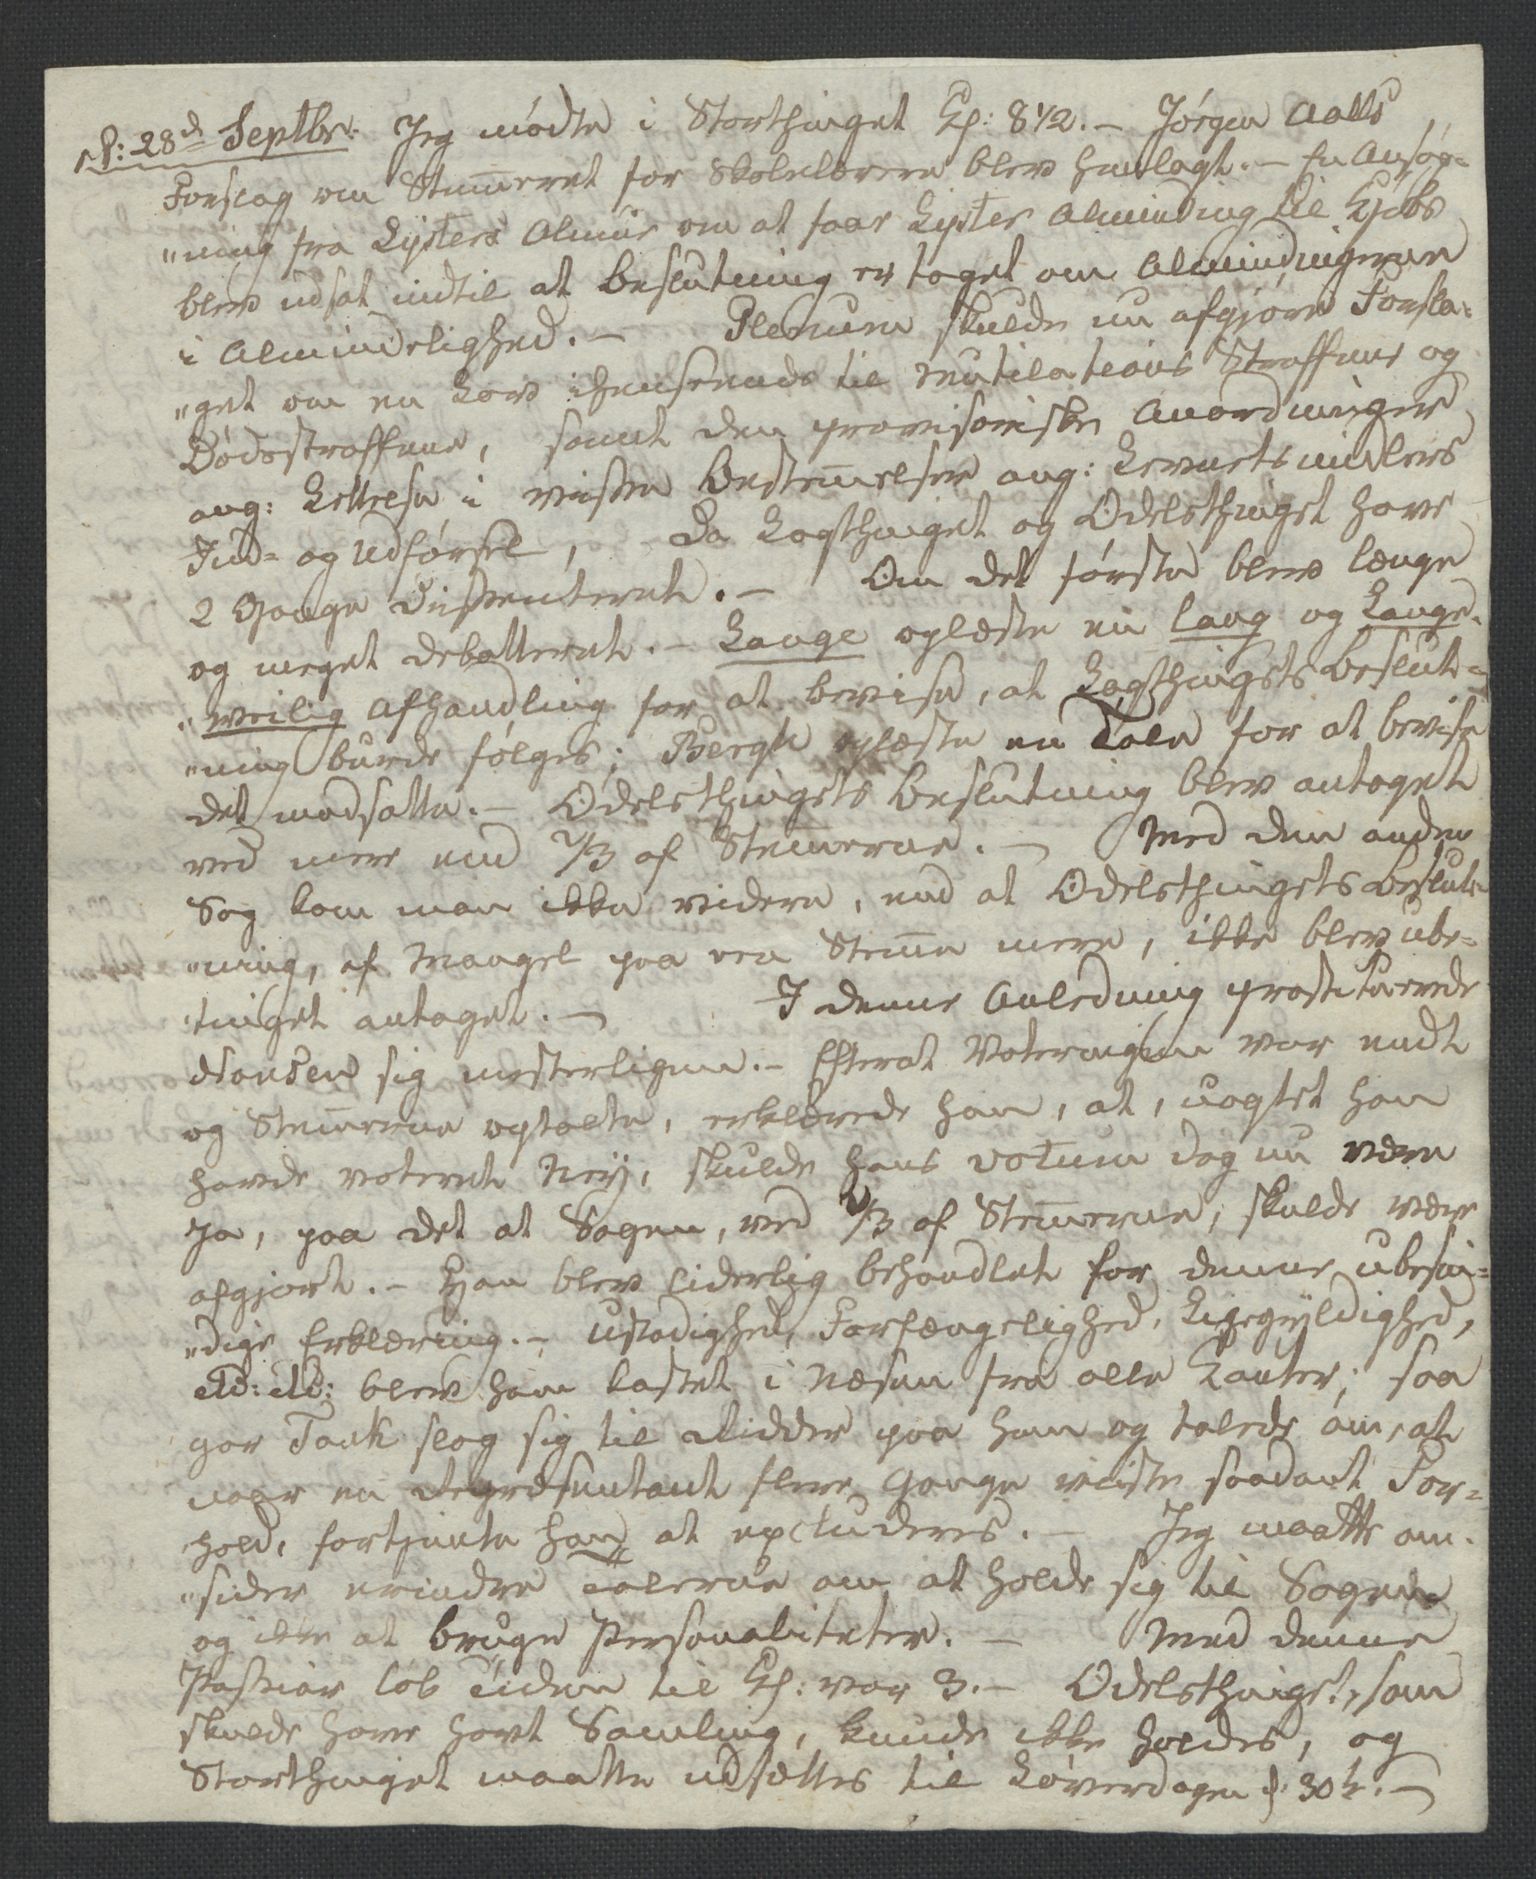 d: 28d Septbr. Jeg mødte i Storthinget Kl: 8 1/2. – Jørgen Aalls
Forslag om Stemeret for Skolelærere blev henlagt. – En Ansøg=
"ning fra Lysters Almue om at faae Lyster Alminding til Kjøbs
blev udsat indtil at Beslutning er taget om Almindingerne
i Almindelighed. – Plenum skulde nu afgjøre Forsla=
"get om en Lov ihenseende til Mutilations Straffene og
Dødsstraffene, samt den provisoriske Anordninger
ang: Lettelse i visse Bestemelser ang: Levnetsmidlers
Ind= og Udførsel, da Lagthinget og Odelsthinget have
2 Gange dissenteret. – Om det første blev længe
og meget debatteret. – Lange oplæste en lang og Lange=
"weilig Afhandling for at bevise, at Lagthingets Beslut=
"ning burde følges; Bergh oplæste en Tale for at bevise
det modsatte. – Odelsthingets Beslutning blev antaget
ved mere end 2/3 af Stemerne. – Med den anden
Sag kom man ikke videre, end at Odelsthingets Beslut=
"ning, af Mangel paa een Steme mere, ikke blev ube=
"tinget antaget. – I denne Anledning prostituerede
Hansen sig mesterligen. – Efterat Voteringen var endt
og Stemerne optalte, erklærede han, at, uagtet han
havde voteret Nej, skulde hans Votum dog nu være
Ja, paa det at Sagen, ved 2/3 af Stemerne, skulde være
afgjort. – Han blev liderlig behandlet for denne ubesin=
"dige Erklæring. – Ustadighed, Forfængelighed, Ligegyldighed,
etc: etc: blev ham kastet i Næsen fra alle Kanter; saa
gar Tank slog sig til Ridder paa ham og talede om, at
naar en Repræsentant flere Gange viiste saadant For=
"hold, fortjente han at excluderes. – Jeg maatte om=
"sider erindre Talerne om at holde sig til Sagen
og ikke at bruge Personaliteter. – Med denne
Passiar løb Tiden til Kl: var 3. – Odelsthinget, som
skulde have havt Samling, kunde ikke holdes, og
Storthinget maatte udsættes til Løverdagen d: 30te. –